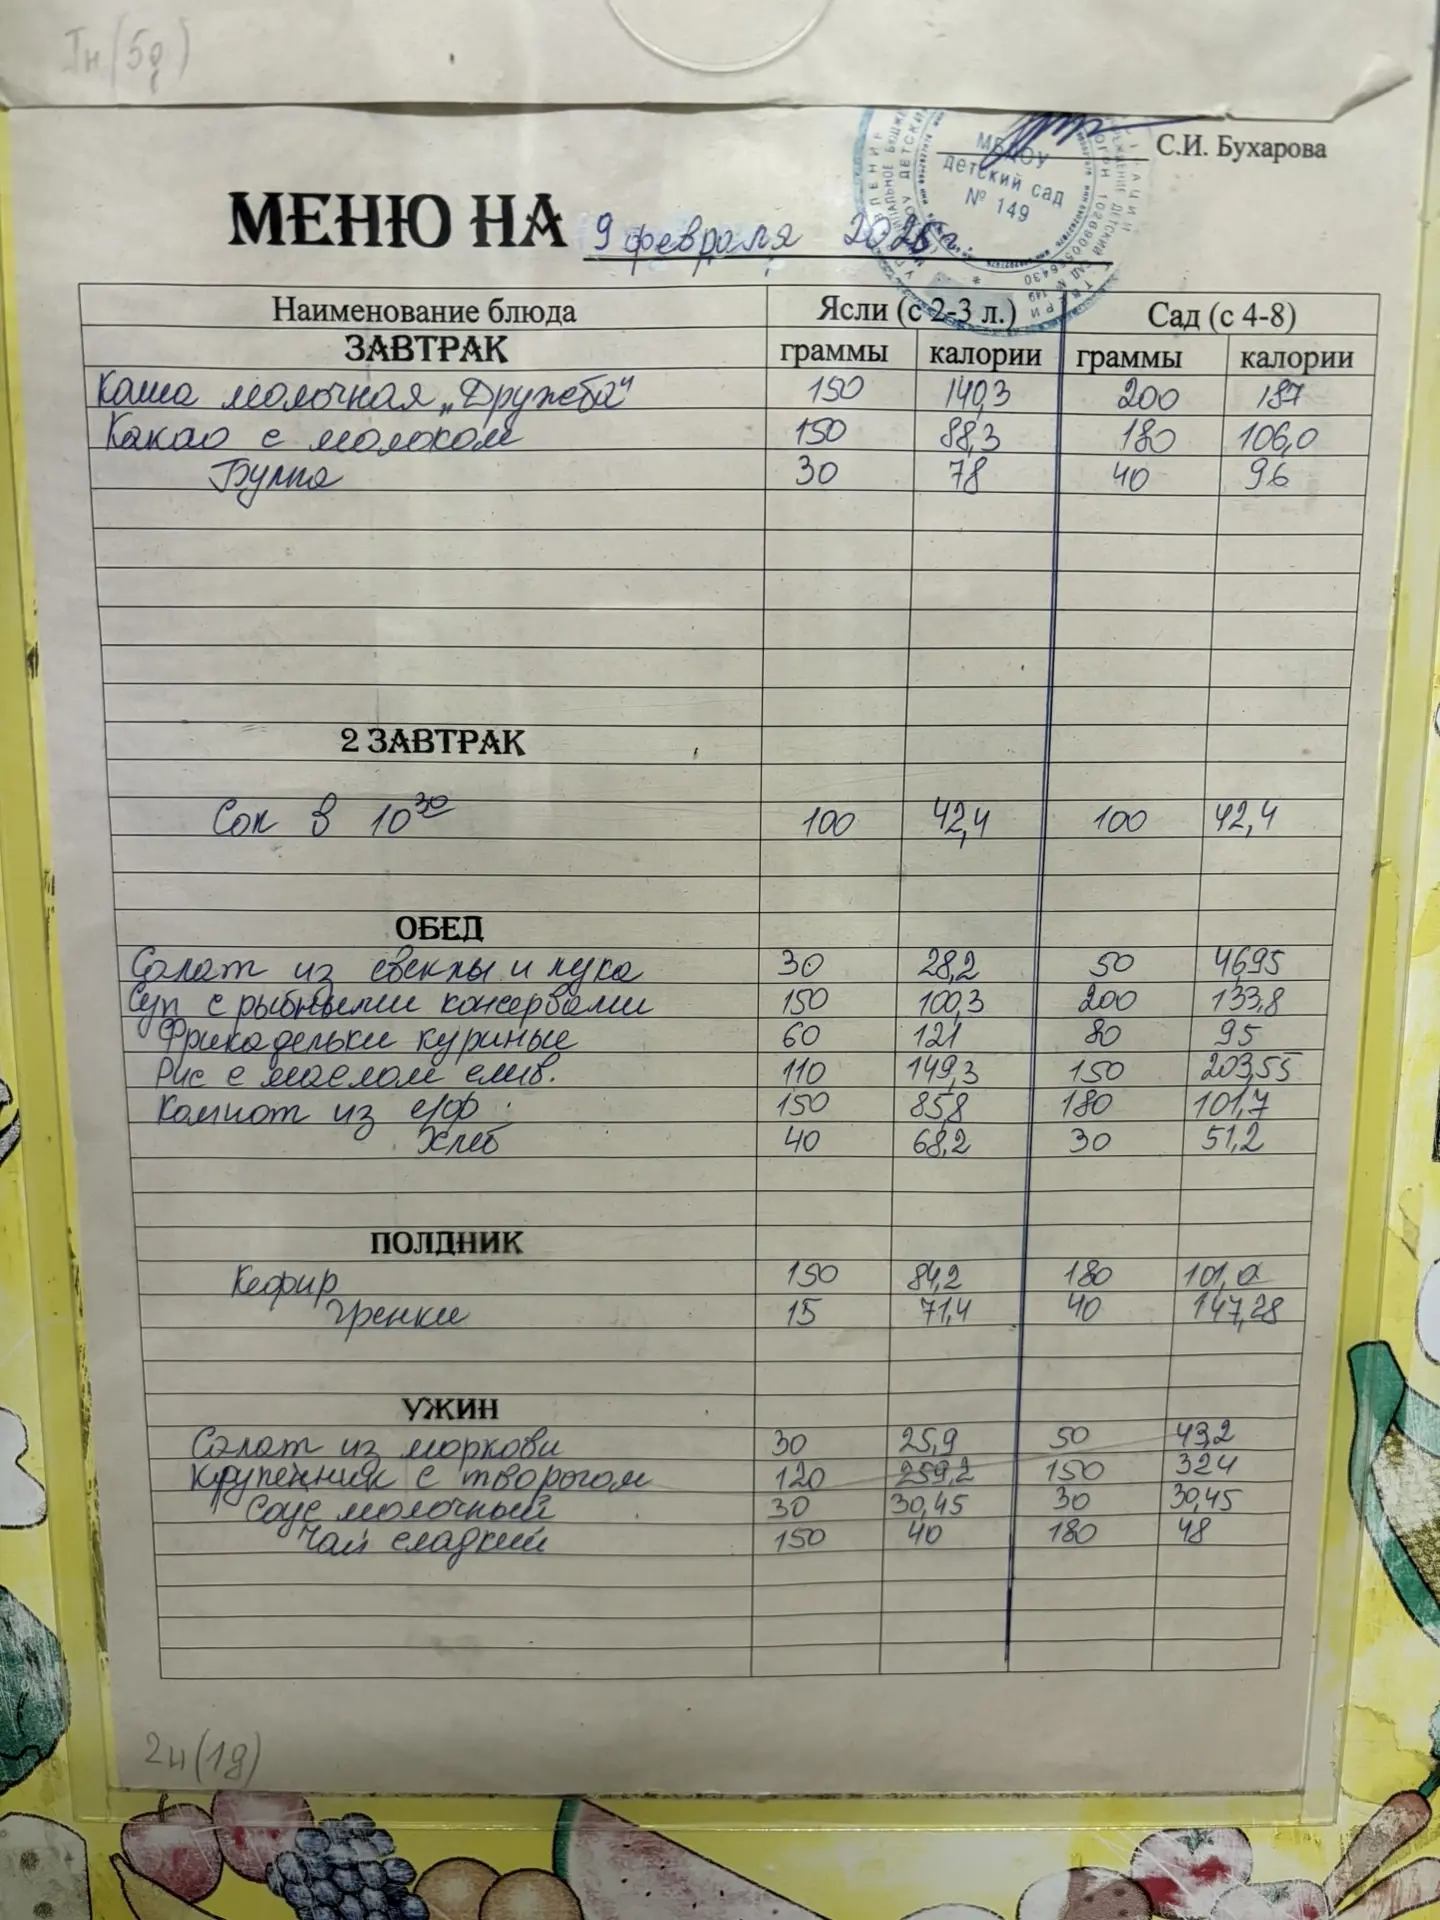 Пн (5д)
С.И. Бухарова
МБДОУ
детский сад
№ 149
МЕНЮ НА 9 февраля
Наименование блюда Ясли (с 2-3 л.) Сад (с 4-8)
ЗАВТРАК граммы калории граммы калории
Каша молочная „Дружба" 150 140,3 200 187
Какао с молоком 150 88,3 180 106,0
Булка 30 78 40 96
2 ЗАВТРАК
Сок в 10 30 100 42,4 100 42,4
ОБЕД
Салат из свеклы и лука 30 28,2 50 46,95
Суп с рыбными консервами 150 100,3 200 133,8
Фрикадельки куриные 60 121 80 95
Рис с маслом слив. 110 149,3 150 203,55
Компот из с/ф 150 85,8 180 101,7
Хлеб 40 68,2 30 51,2
ПОЛДНИК
Кефир 150 84,2 180 101,0
Гренки 15 71,4 40 147,28
УЖИН
Салат из моркови 30 25,9 50 43,2
Крупенник с творогом 120 259,2 150 324
Соус молочный 30 30,45 30 30,45
Чай сладкий 150 40 180 48
2н (1д)